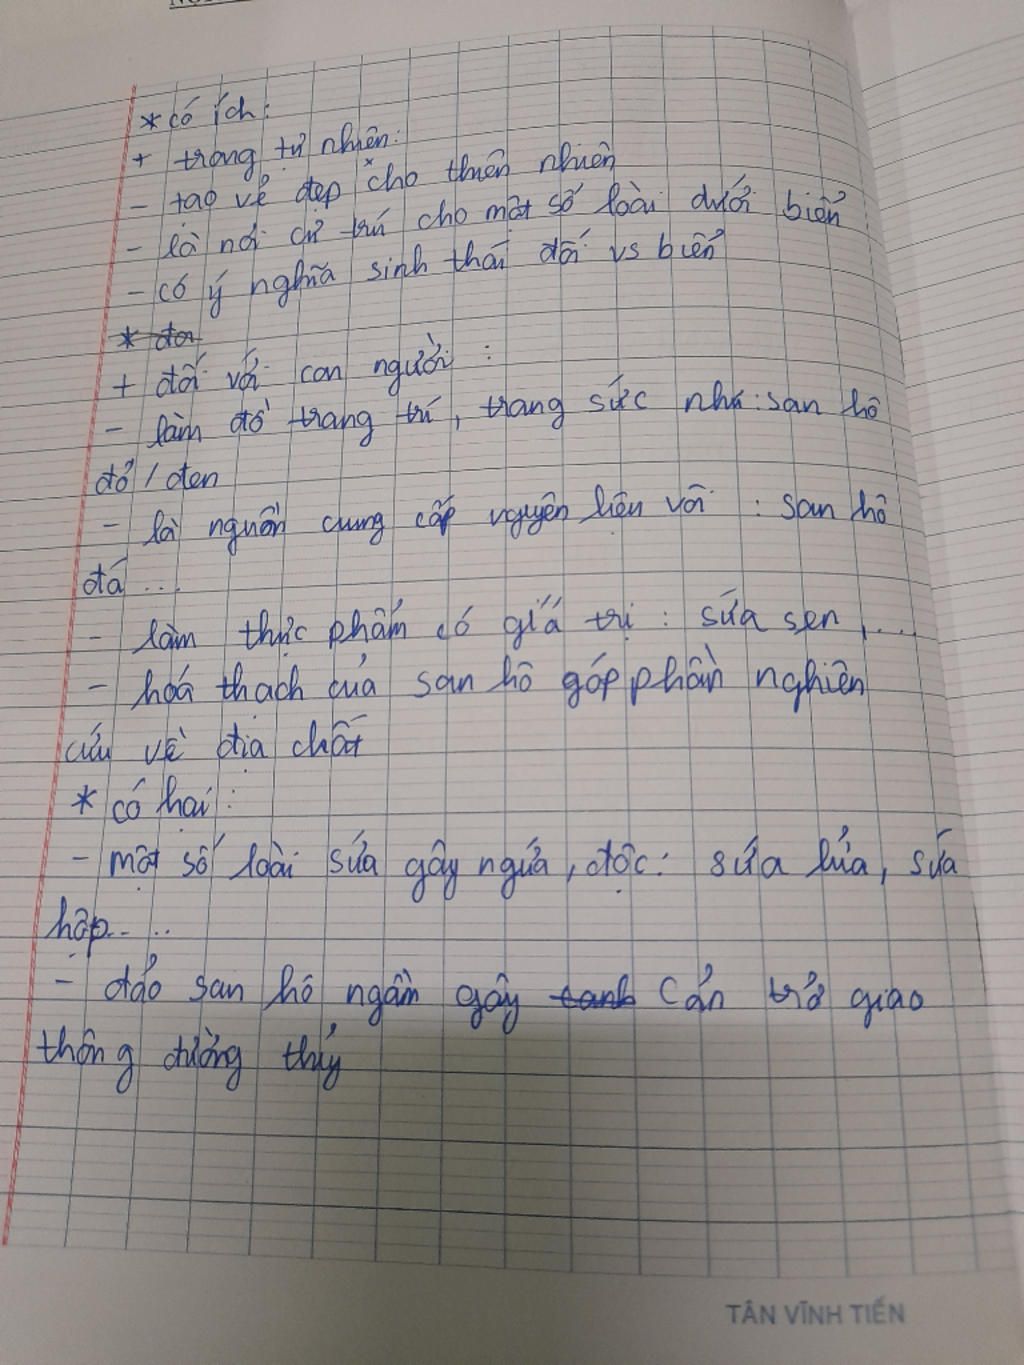 * có ích:
+ trong tự nhiên:
- tạo vẻ đẹp cho thiên nhiên
- là nơi cư trú cho một số loài dưới biển
- có ý nghĩa sinh thái đối vs biển
* đơ
+ đối với con người :
- làm đồ trang trí, trang sức như: san hô
đỏ / đen
- là nguồn cung cấp nguyên liệu vôi : san hô
đá ...
- làm thực phẩm có giá trị : sứa sen, ...
- hoá thạch của san hô góp phần nghiên
cứu về địa chất
* có hại :
- một số loài sứa gây ngứa, độc: sứa lửa, sứa
hộp.. ..
- đảo san hô ngầm gây tanh cản trở giao
thông đường thủy
TÂN VĨNH TIẾN